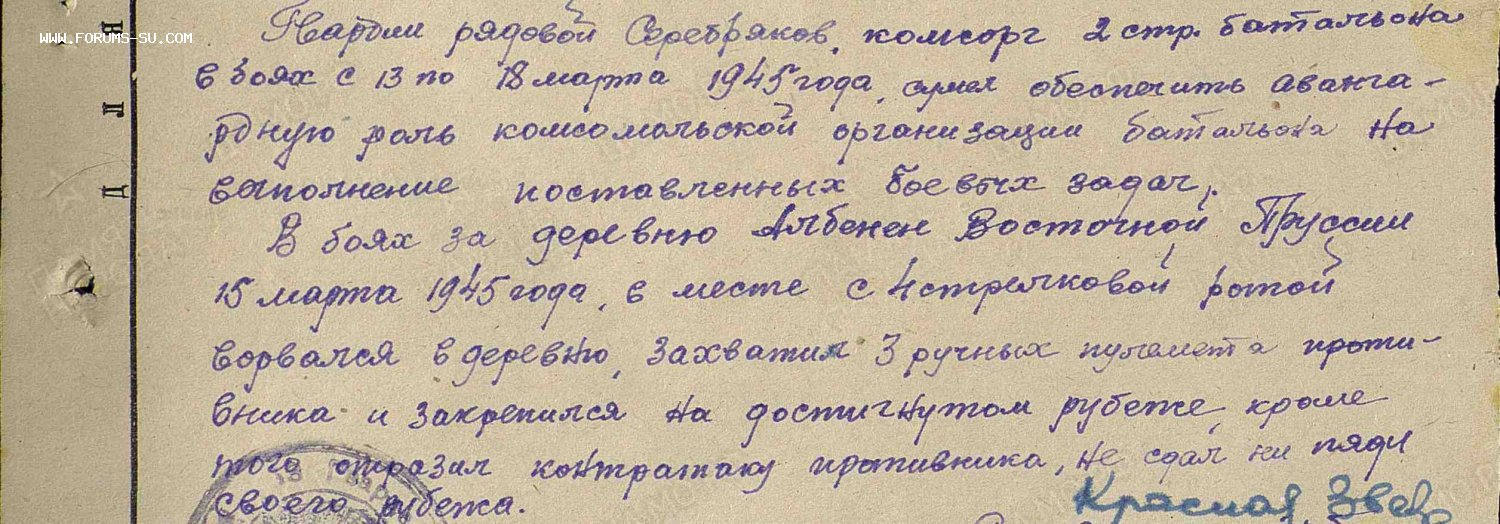 WWW.FORUMS-SU.COM
Гвардии рядовой Серебряков, комсорг 2 стр. батальона
в боях с 13 по 18 марта 1945 года, сумел обеспечить аванга-
рдную роль комсомольской организации батальона на
выполнение поставленных боевых задач.
В боях за деревню Альбенен Восточной Пруссии
15 марта 1945 года, в месте с 4 стрелковой ротой
ворвался в деревню, захватил 3 ручных пулемета проти-
вника и закрепился на достигнутом рубеже, кроме
того отразил контратаку противника, не сдал ни пяди
своего рубежа.
Красная Звезд